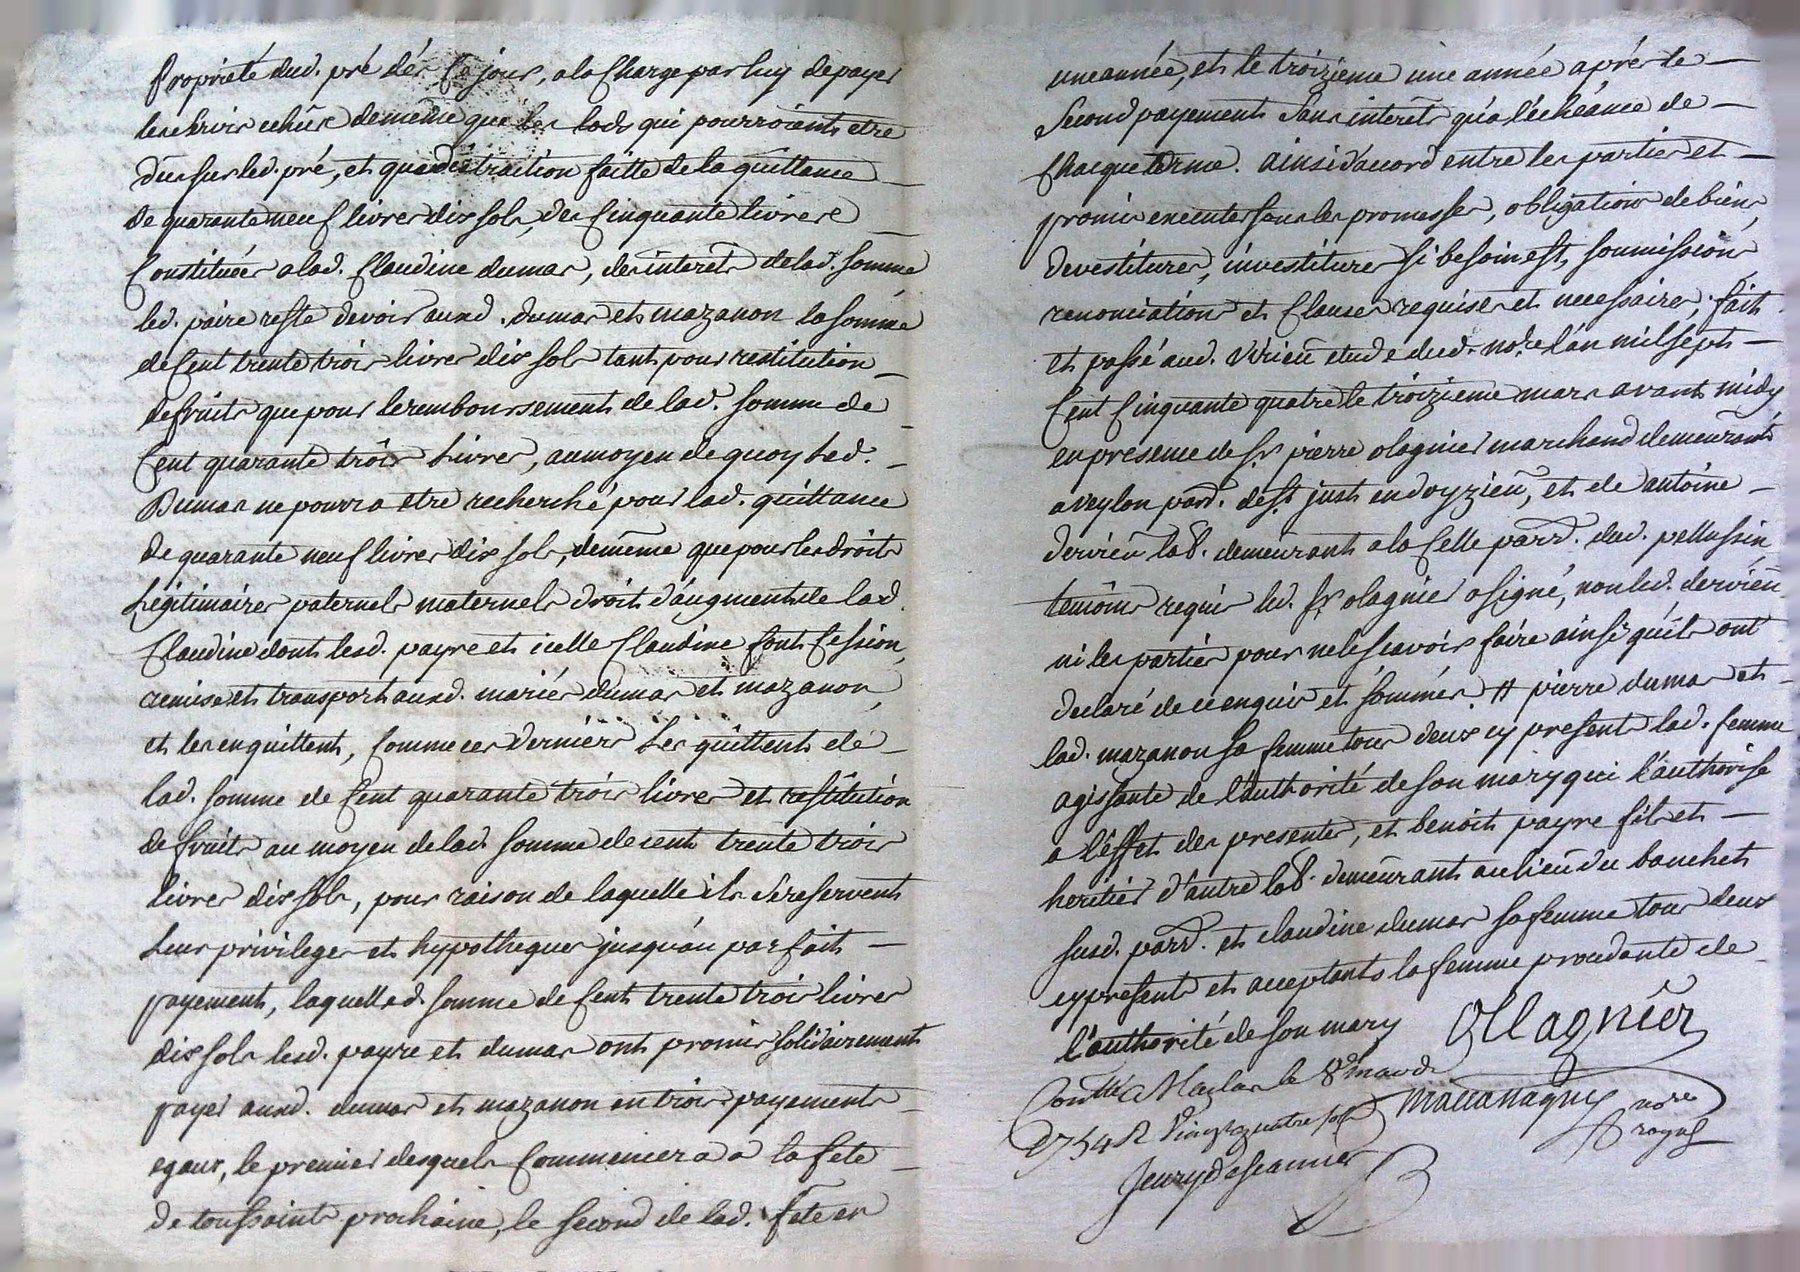 propriété dud. pré dés ce jour, a la charge par luy de payer
les servis echûs demême que les lods qui pourroients etre
dus sur led. pré, et que distraction faitte de la quittance
de quarante neuf livres dix sols, des cinquante livres
Constituées a lad. Claudine dumas, des interets de lad. somme
led. paire reste devoir auxd. dumas et mazanon la somme
de Cent trente trois livres dix sols tant pour restitution
de fruits que pour le remboursements de lad. somme de
Cent quarante trois Livres, au moyen de quoy Led.
Dumas ne pourra etre recherché pour lad. quittance
de quarante neuf livres dix sols, demême que pour les droits
Légitimaires paternels maternels droit d'augments de lad.
Claudine dont lesd. payre et icelle Claudine font Cession,
remise et transport auxd. mariés dumas et mazanon,
et les en quittent, Comme ces derniers Les quittent de
lad. somme de Cent quarante trois livres et restitution
de fruits au moyen de lad. somme de cent trente trois
livres dix sols, pour raison de laquelle ils se reservent
Leur privileges et hypotheques jusqu'au parfait
payements, laquelle d. somme de Cent trente trois livres
dix sols lesd. payre et dumas ont promis solidairements
payer auxd. dumas et mazanon en trois payements
egaux, le premier desquels Commencera a la fete
de toussaints prochaine, le second de lad. fete en
une année, et le troizieme une année aprés le
Second payements sans interets qu'a l'echéance de
Chacque terme. ainsi d'accord entre les parties et
promis executer sous les promesses, obligations de biens,
devestitures, investitures si besoin est, soumissions
renonciations et Clauses requises et necessaires; fait
et passé aud. Virieu etude dud. nore. l'an mil sept
Cent Cinquante quatre le troizieme mars avant midy
en presence de Sr. pierre olagnier marchand demeurant
a veylon parr. de St. just en doyzieu, et de antoine
dervieu lab. demeurants a la Celle parr. dud. pellussin
temoins requis led. Sr. olagnier a signé, non led. dervieu
ni les parties pour ne le scavoir faire ainsi qu'ils ont
declaré de ce enquis et sommés. # pierre dumas et
lad. mazanon sa femme tous deux cy presents lad. femme
agissante de l'authorité de son mary qui l'authorise
a l'effet des presentes, et benoit payre fils et
heritier d'autre lab. demeurants au lieu du bouchet
susd. parr. et claudine dumas sa femme tous deux
cy presents et acceptants la femme procedante de
l'authorité de son mary
Ollagnier
Conllé a Maclas le 8 mars
1754 R vingt quatre sols
nore
royal